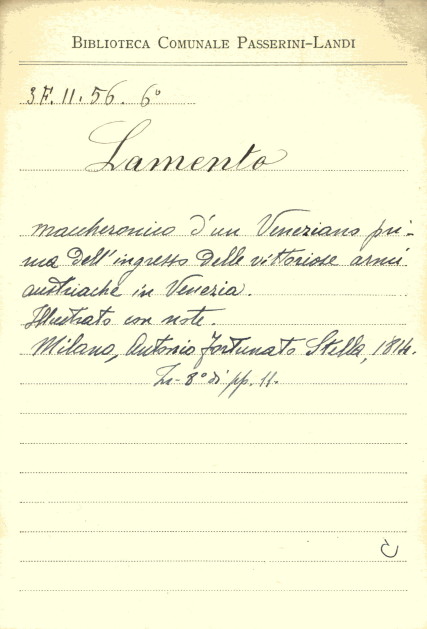 BIBLIOTECA COMUNALE PASSERINI-LANDI
3F.11.56.6°
Lamento
maccheronico d'un Veneziano pri-
ma dell'ingresso delle vittoriose armi
austriache in Venezia.
Illustrato con note.
Milano, Antonio Fortunato Stella, 1814.
In-8° di pp. 11.